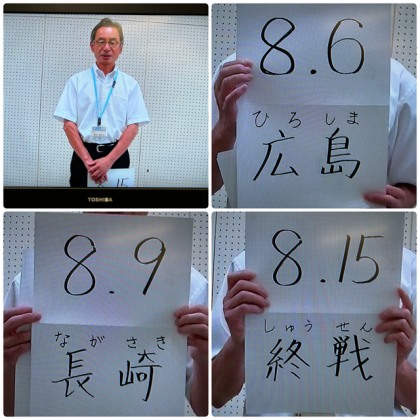 TOSHIBA
8.6
ひろしま
広島
8.9
ながさき
長崎
8.15
しゅうせん
終戦